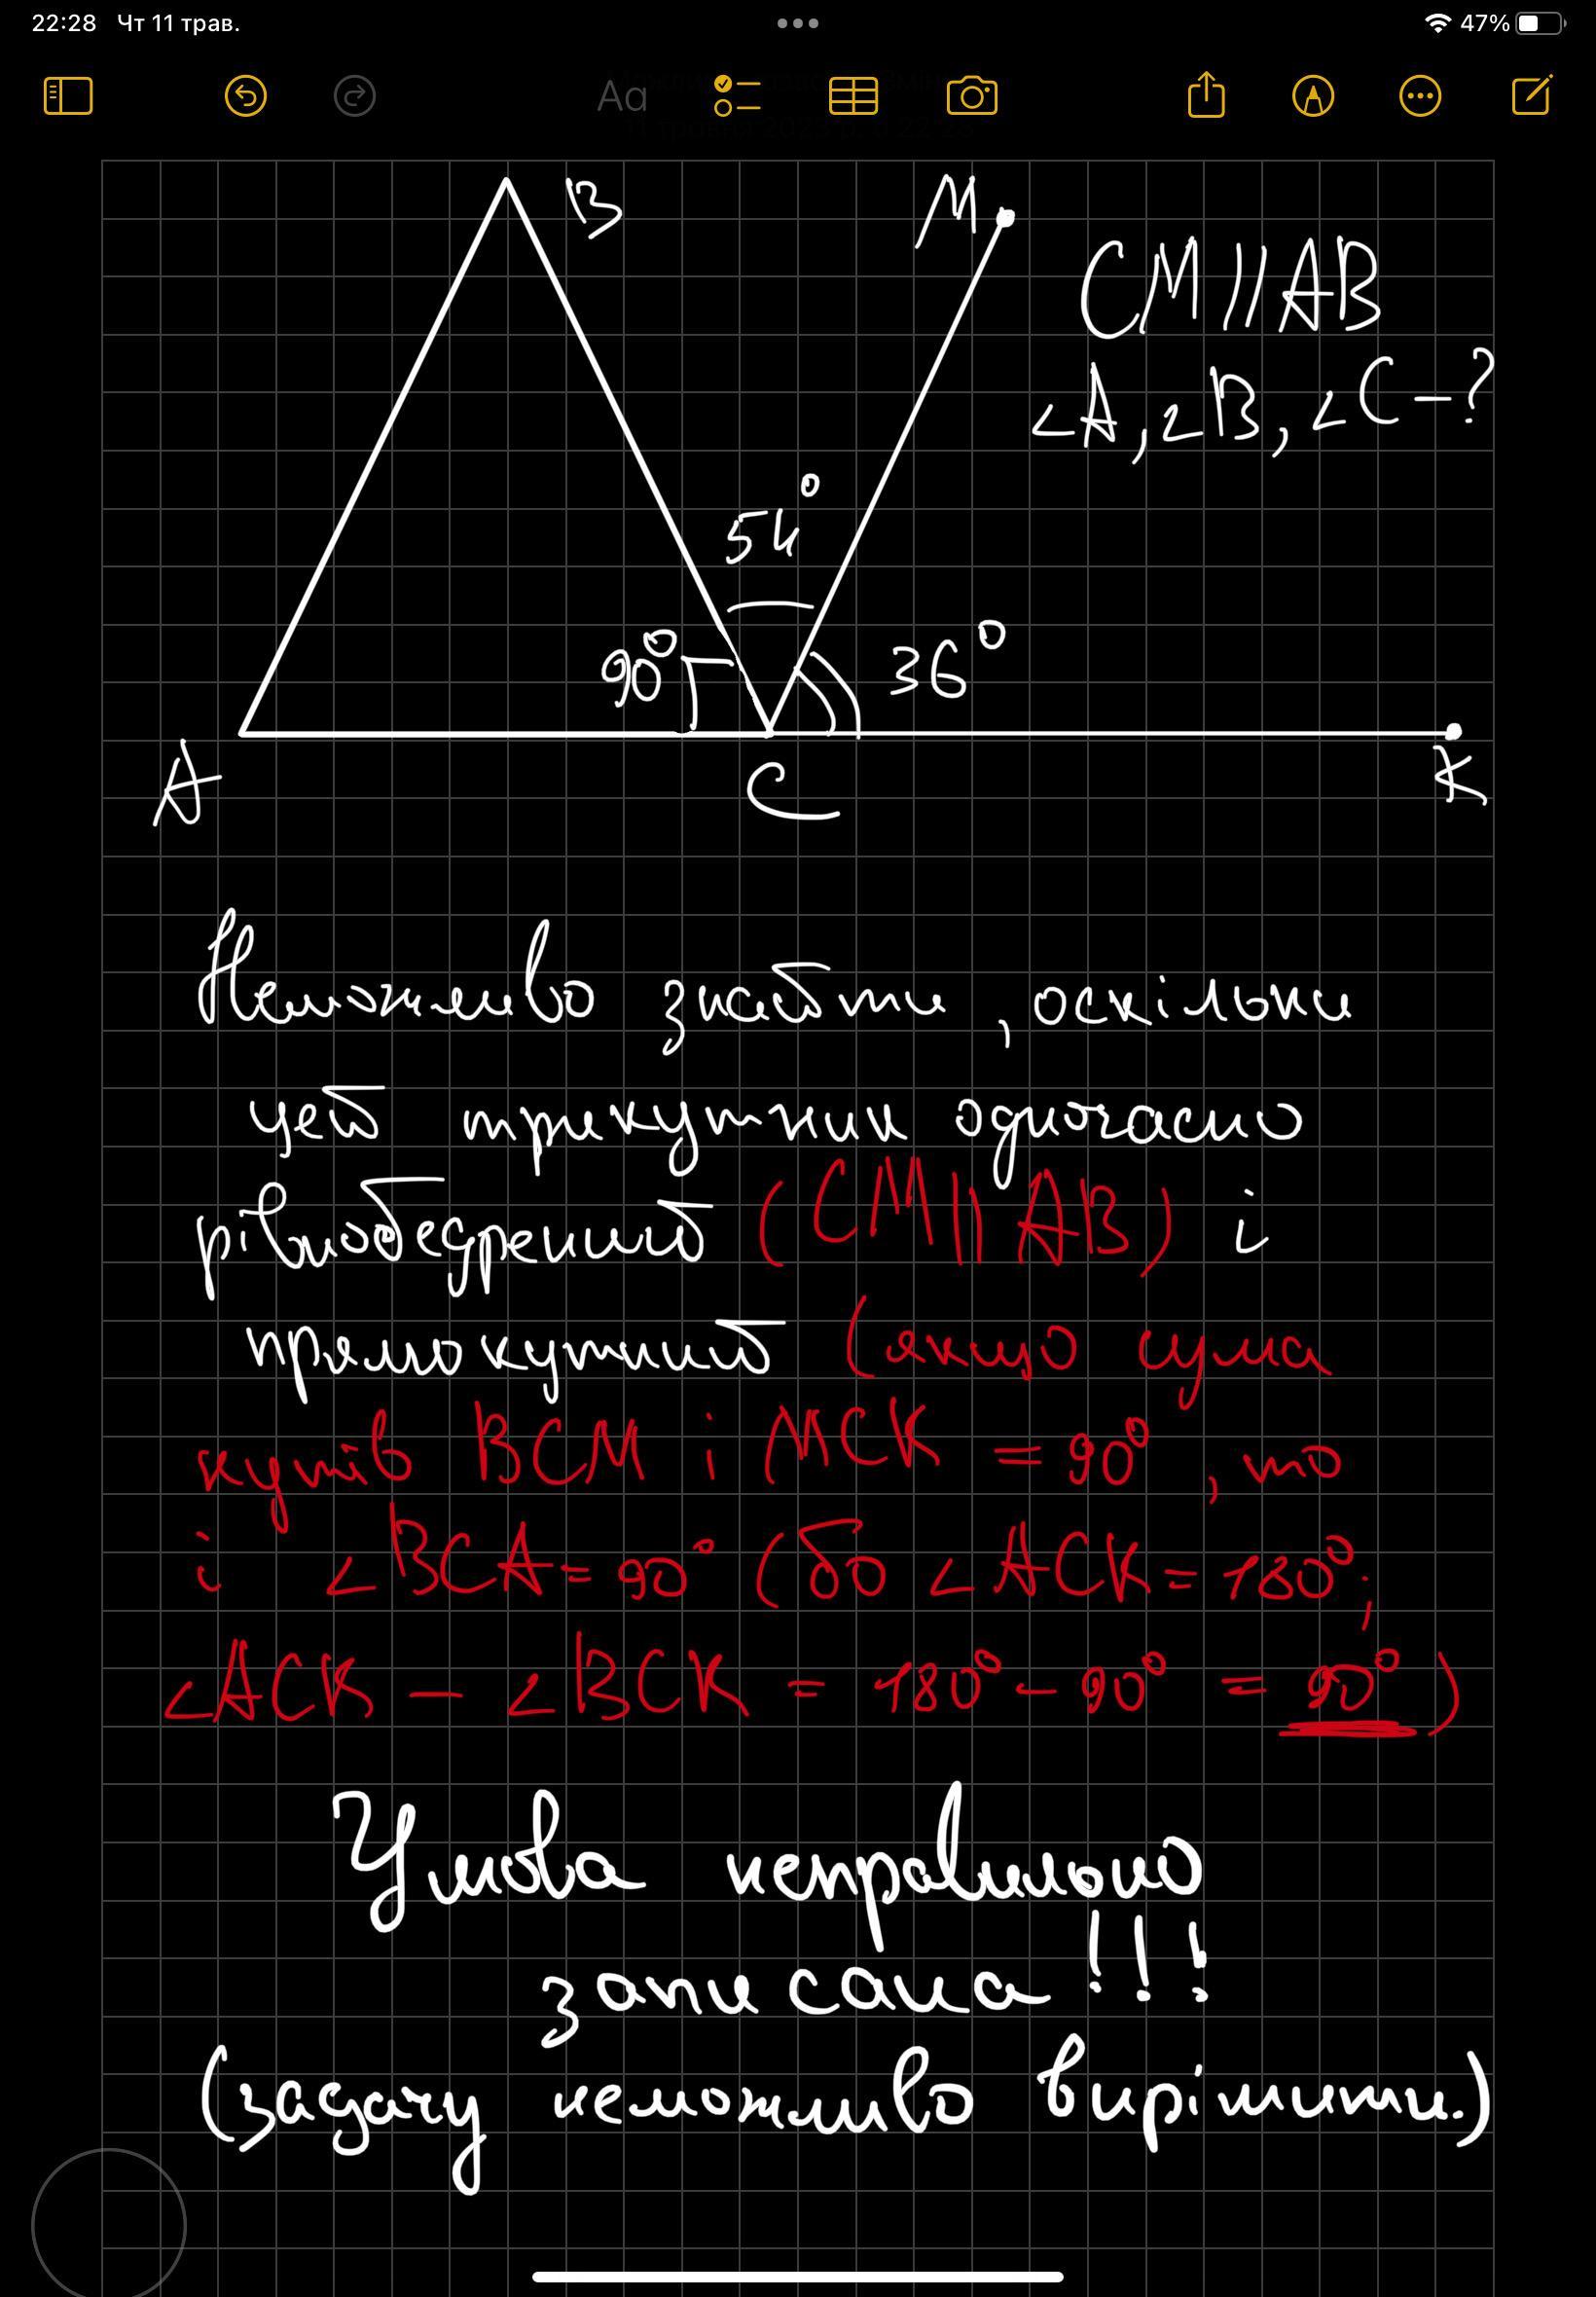 22:28 Чт 11 трав.
47%
Aa
B
M
CM||AB
∠A, ∠B, ∠C – ?
54°
90°
36°
A
C
K
Неможливо знайти, оскільки
цей трикутник одночасно
рівнобедрений (CM||AB) і
прямокутний (якщо сума
кутів BCM і MCK = 90°, то
і ∠BCA = 90° (бо ∠ACK = 180°;
∠ACK – ∠BCK = 180° – 90° = 90°)
Умова неправильно
записана!!!
(задачу неможливо вирішити.)